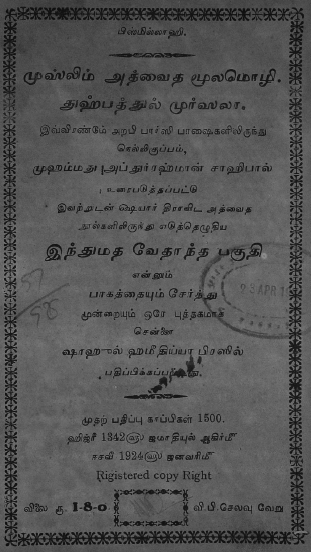 பிஸ்மில்லாஹி.
முஸ்லிம் அத்வைத மூலமொழி.
துஹ்பத்துல் முர்ஸலா.
இவ்விரண்டும் அறபி பார்ஸி பாஷைகளிலிருந்து
செல்லிகுப்பம்,
முஹம்மது அப்துர்ரஹ்மான் சாஹிபால்
உரைபடுத்தப்பட்டு
இவற்றுடன் ஷெயார் திராவிட அத்வைத
நூல்களிலிருந்து எடுத்தெழுதிய
இந்துமத வேதாந்த பகுதி
என்னும்
பாகத்தையும் சேர்த்து
மூன்றையும் ஒரே புத்தகமாகச்
சென்னை
ஷாஹுல் ஹமீதிய்யா பிரஸில்
பதிப்பிக்கப்பட்டது.
முதற் பதிப்பு காப்பிகள் 1500.
ஹிஜ்ரீ 1342௵ ஜமாதியுல் ஆகிர்௴
ஈசவி 1924௵ ஜனவரி௴
Rigistered copy Right
விலை ரூ. 1-8-0
வி.பி.செலவு வேறு